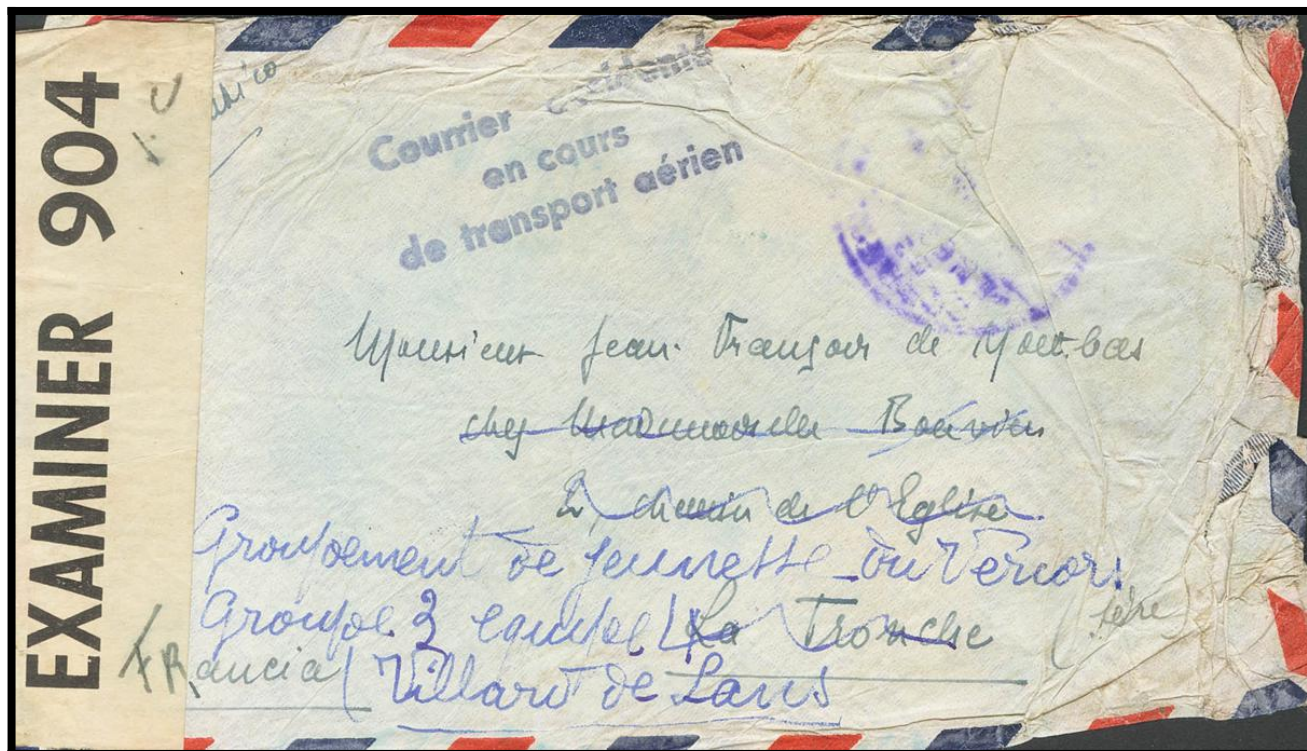 EXAMINER 904
Courrier accidenté
en cours
de transport aérien
Monsieur Jean François de Montbas
chez Mademoiselle Bouvier
2, chemin de l'Eglise
Groupement de jeunesse du Vercors
Groupe 3 equipe 4 La Tronche (Isère)
Francia Villard de Lans